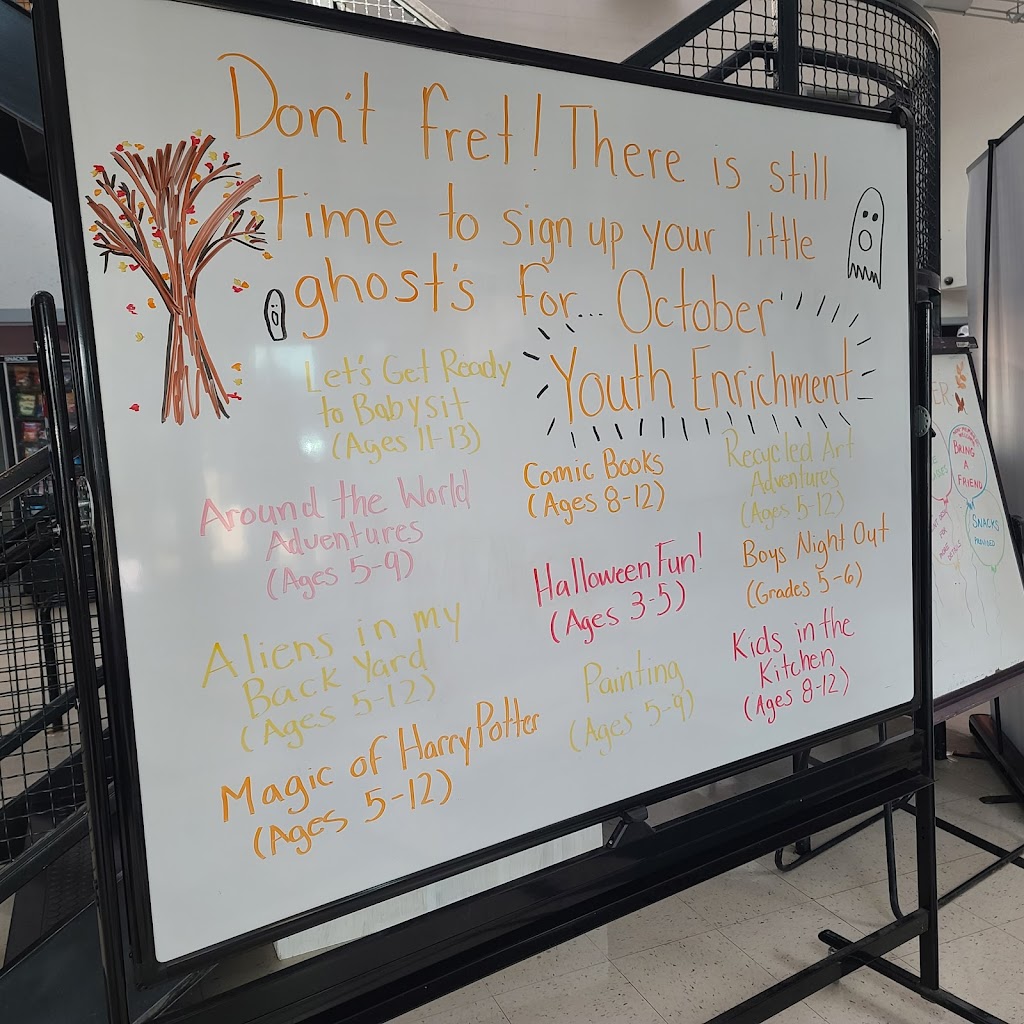 Don't fret! There is still
time to sign up your little
ghost's for... October
Youth Enrichment
Let's Get Ready
to Babysit
(Ages 11-13)
Around the World
Adventures
(Ages 5-9)
Aliens in my
Back Yard
(Ages 5-12)
Magic of Harry Potter
(Ages 5-12)
Comic Books
(Ages 8-12)
Halloween Fun!
(Ages 3-5)
Painting
(Ages 5-9)
Recycled Art
Adventures
(Ages 5-12)
Boys Night Out
(Grades 5-6)
Kids in the
Kitchen
(Ages 8-12)
SNACKS
ER
BRING
A
FRIEND
SNACKS
PROVIDED